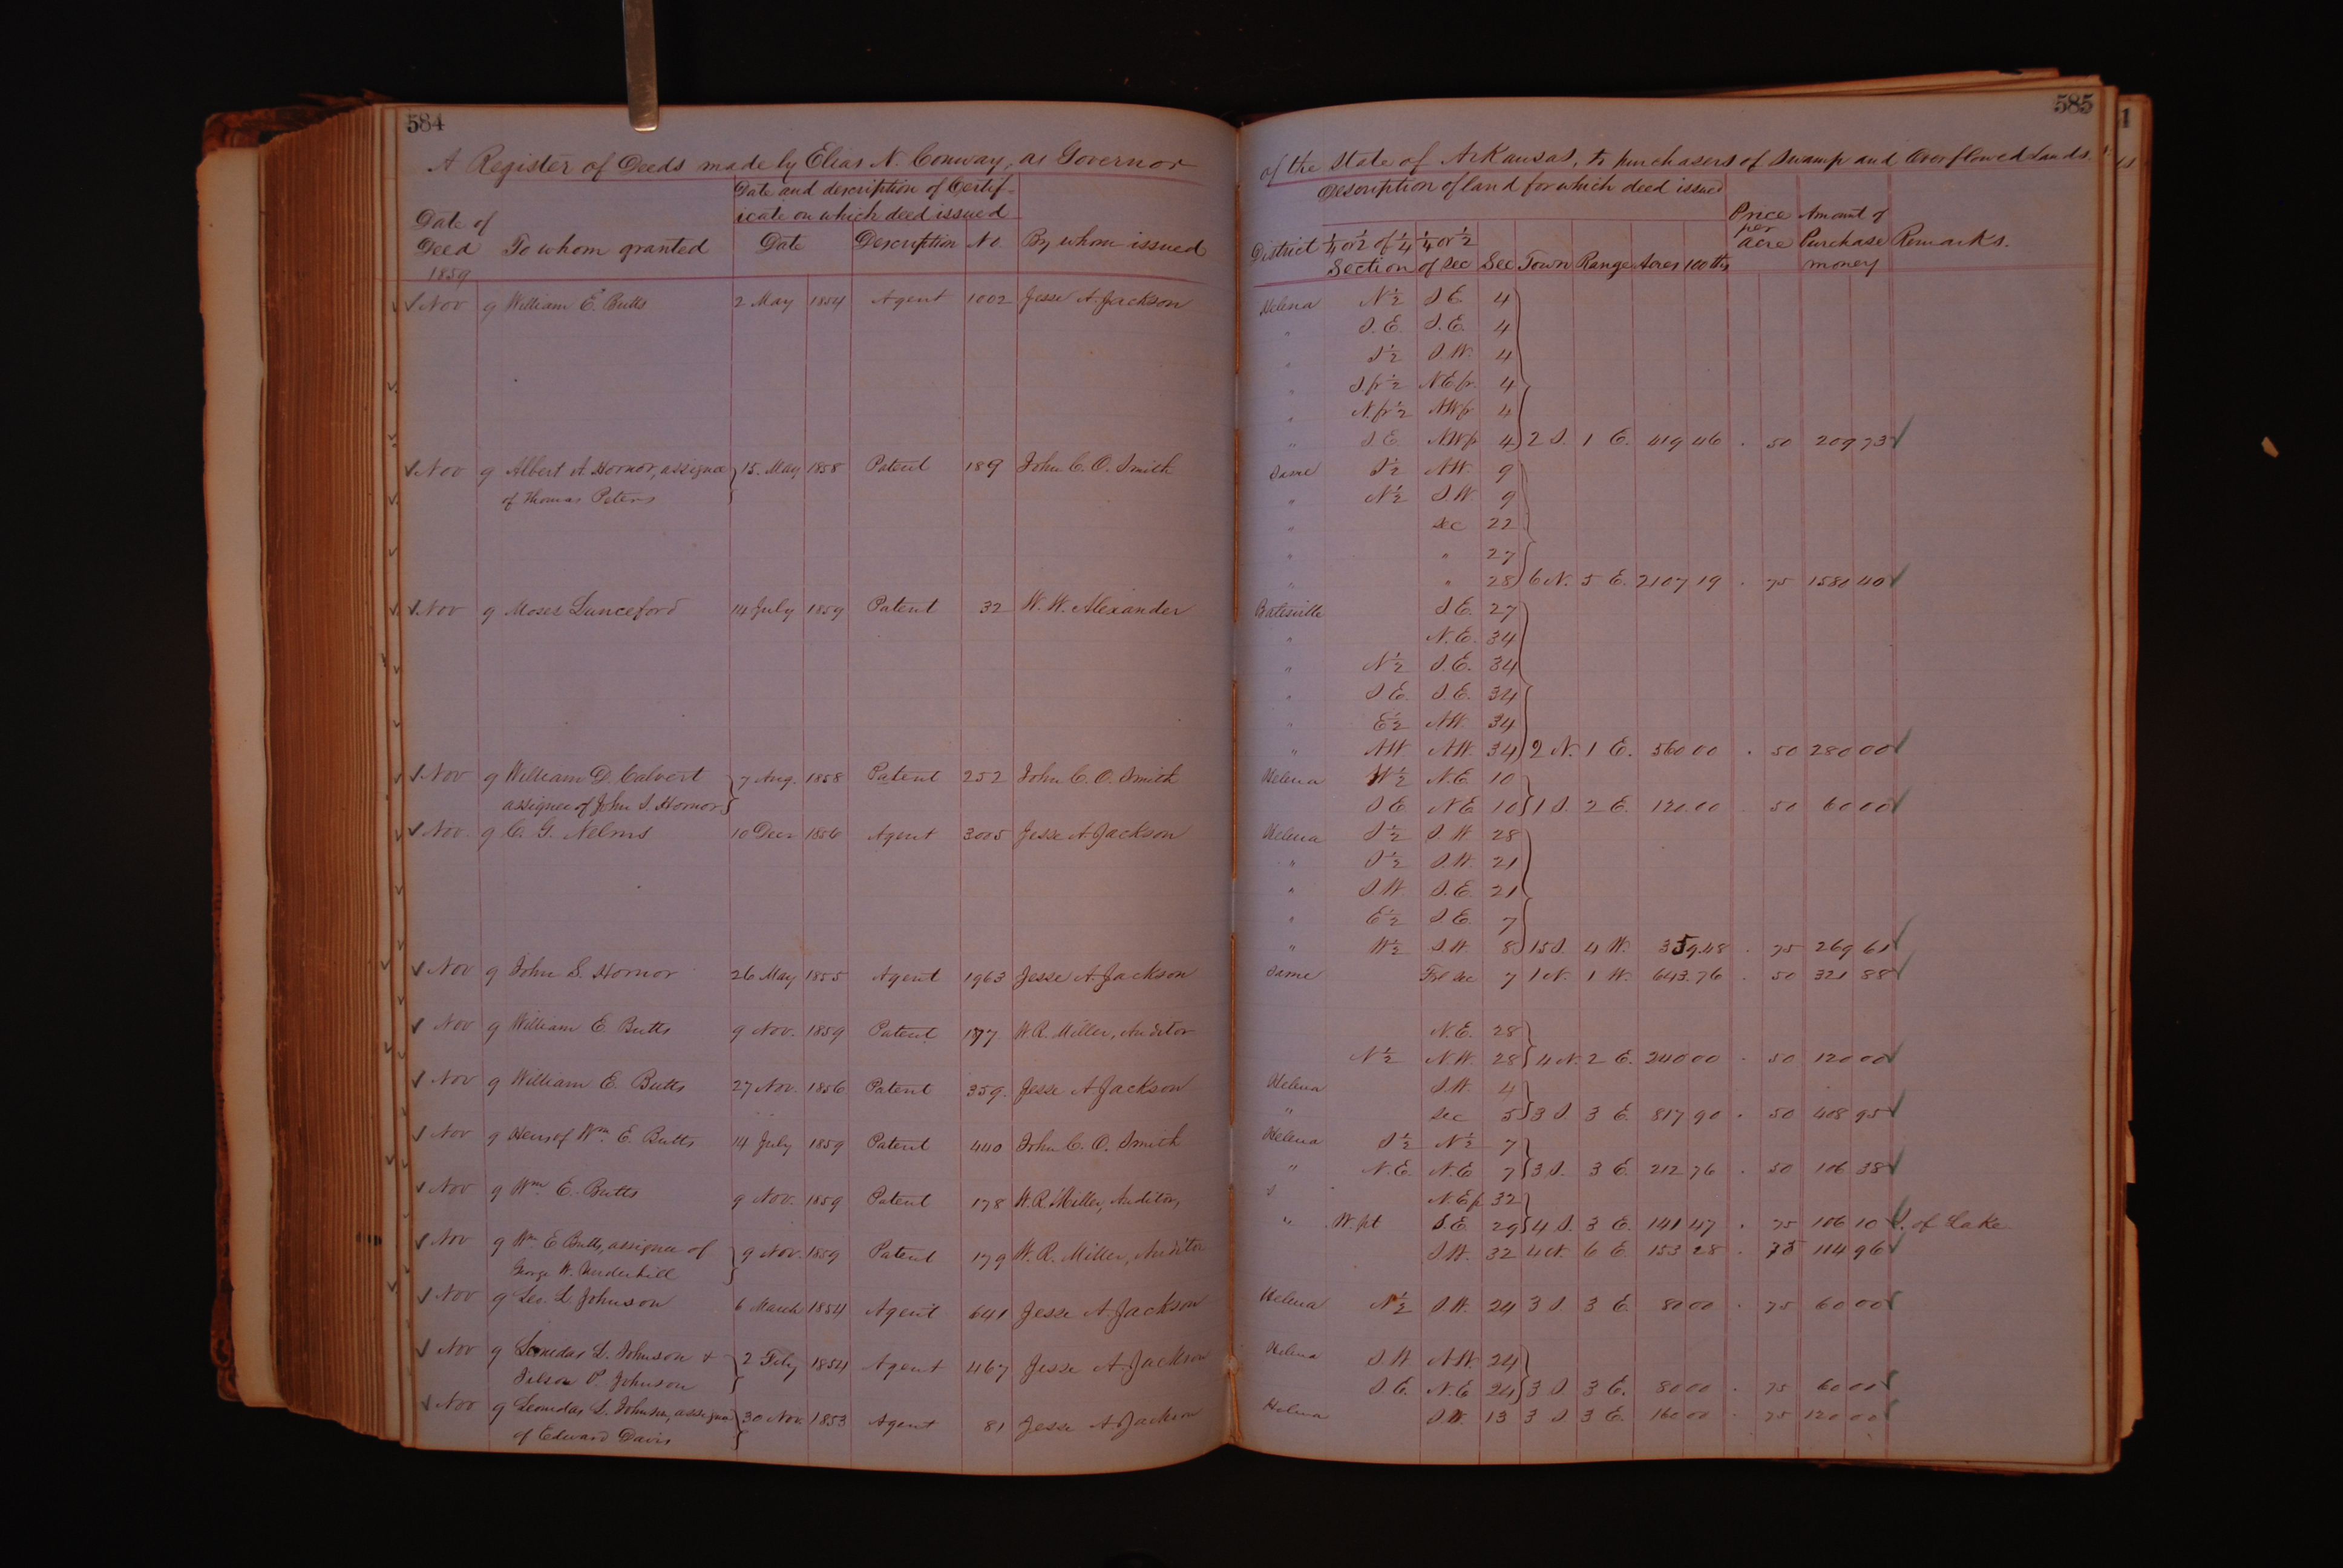 584
A Register of Deeds made by Elias N. Conway, as Governor
Date and description of Certif-
icate on which deed issued
Date of
Deed To whom granted Date Description No. By whom issued
1859
Nov 9 William E. Butts 2 May 1854 Agent 1002 Jesse A. Jackson
Nov 9 Albert A. Hornor, assignee 15. May 1858 Patent 189 John C. O. Smith
of Thomas Peters
Nov 9 Moses Lunceford 14 July 1859 Patent 32 W. W. Alexander
Nov 9 William D. Calvert 7 Aug. 1858 Patent 252 John C. O. Smith
assignee of John S. Hornor
Nov. 9 C. G. Nelms 10 Decr 1856 Agent 3005 Jesse A Jackson
Nov 9 John S. Hornor 26 May 1855 Agent 1963 Jesse A Jackson
Nov 9 William E Butts 9 Nov. 1859 Patent 177 W. R. Miller, Auditor
Nov 9 William E. Butts 27 Nov. 1856 Patent 359. Jesse A Jackson
Nov 9 Heirs of Wm. E. Butts 14 July 1859 Patent 440 John C. O. Smith
Nov 9 Wm. E. Butts 9 Nov. 1859 Patent 178 W. R. Miller, Auditor,
Nov 9 Wm E Butts, assignee of 9 Nov. 1859 Patent 179 W. R. Miller, Auditor
George W. Underhill
Nov 9 Leo. L. Johnson 6 March 1854 Agent 641 Jesse A Jackson
Nov 9 Leonidas L. Johnson & 2 Feby 1854 Agent 467 Jesse A. Jackson
P. Johnson
Nov 9 Leonidas L. Johnson, assignee 30 Nov. 1853 Agent 81 Jesse A Jackson
of Edward Davis
585
of the State of Arkansas, to purchasers of Swamp and Overflowed Lands.
Description of land for which deed issued
District ¼ or ½ of ¼ Section ¼ or ½ of Sec Sec Town Range Acres 100ths Price per acre Amount of Purchase money Remarks.
Helena N½ S E. 4
" S. E. S. E. 4
" S½ S. W. 4
" S fr ½ N E fr. 4
" N. fr ½ N W fr 4
" S. E. N W fr 4 2 S. 1 E. 419 46 . 50 209 73
Same S½ N W. 9
" N½ S. W. 9
" Sec 22
" " 27
" " 28 6 N. 5 E. 2107 19 . 75 1580 40
Batesville S E. 27
" N. E. 34
" N½ S. E. 34
" S. E. S. E. 34
" E½ N W. 34
" N W N W. 34 2 N. 1 E. 560 00 . 50 280 00
Helena W½ N. E. 10
S E N E 10 1 S. 2 E. 120.00 . 50 60 00
Helena S½ S. W 28
" S½ S. W. 21
" S W. S. E. 21
" E½ S E. 7
" W½ S W. 8 15 S. 4 W. 359.48 . 75 269 61
Same Frl Sec 7 1 N. 1 W. 643.76 . 50 321 88
N. E. 28
N½ N. W. 28 4 N. 2 E. 240 00 . 50 120 00
Helena S. W. 4
" Sec 5 3 S 3 E. 817 90 . 50 408 95
Helena S½ N½ 7
" N. E. N. E 7 3 S. 3 E. 212 76 . 50 106 38
N. E fr 32
" W. pt S. E. 29 4 S. 3 E. 141 47 . 75 106 10 S. of Lake
S W. 32 4 N. 6 E. 153 28 . 75 114 96
Helena N½ S. W. 24 3 S. 3 E. 80 00 . 75 60 00
Helena S. W N W. 24
S. E. N. E 24 3 S. 3 E. 80 00 . 75 60 00
Helena S W. 13 3 S 3 E. 160 00 . 75 120 00
1